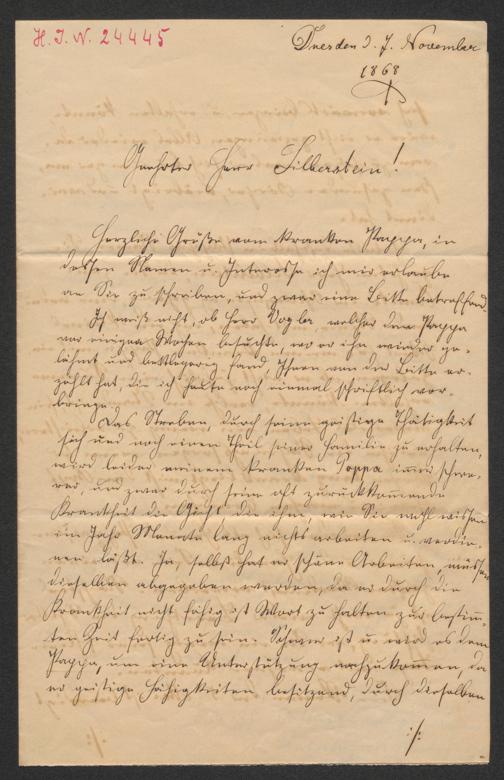 H. I. N. 24445
Dresden d. 7. November
1868
Geehrter Herr Silberstein!
Herzliche Grüße vom kranken Pappa, in
dessen Namen u. Interesse ich mir erlaube
an Sie zu schreiben, und zwar eine Bitte betreffend.
Ich weiß nicht, ob Herr Vogler welcher den Pappa
vor einigen Wochen besuchte, wo er ihn wieder ge-
lähmt und bettlägerig fand, Ihnen von der Bitte er-
zählt hat, die ich heute noch einmal schriftlich vor-
bringe.
Das Streben, durch seine geistige Thätigkeit
sich und noch einen Theil seiner Familie zu erhalten,
wird leider meinem kranken Pappa immer schwe-
rer, und zwar durch seine oft zurückkomende
Krankheit die Gicht, die ihn, wie Sie wohl wissen
im Jahr Monate lang nichts arbeiten u. verdie-
nen läßt. Ja, selbst hat er schöne Arbeiten, müssen
dieselben abgegeben werden, da er durch die
Krankheit nicht fähig ist Wort zu halten zur bestim-
ten Zeit fertig zu sein. Schwer ist u. wird es dem
Pappa, um eine Unterstützung nachzukommen, da
er geistige Fähigkeiten besitzend, durch dieselben
:/: